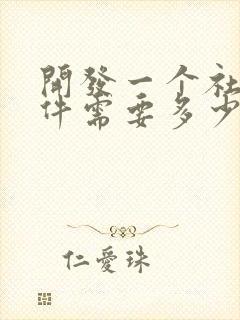 開發一个社
件需要多少
仁愛珠